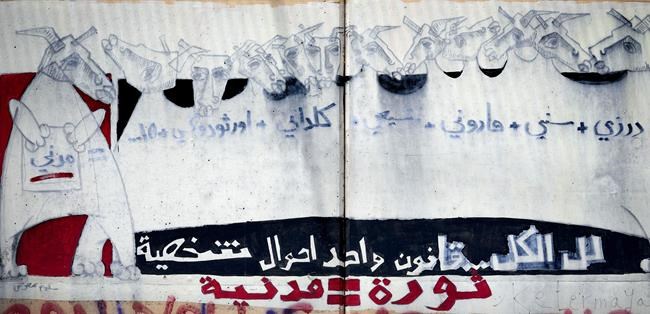 درزي + سني + ماروني + شيعي + كلداني + اورثودوكسي +
مدني
لل الكل قانون واحد احوال شخصية
ثورة = مدنية
Ketermaya